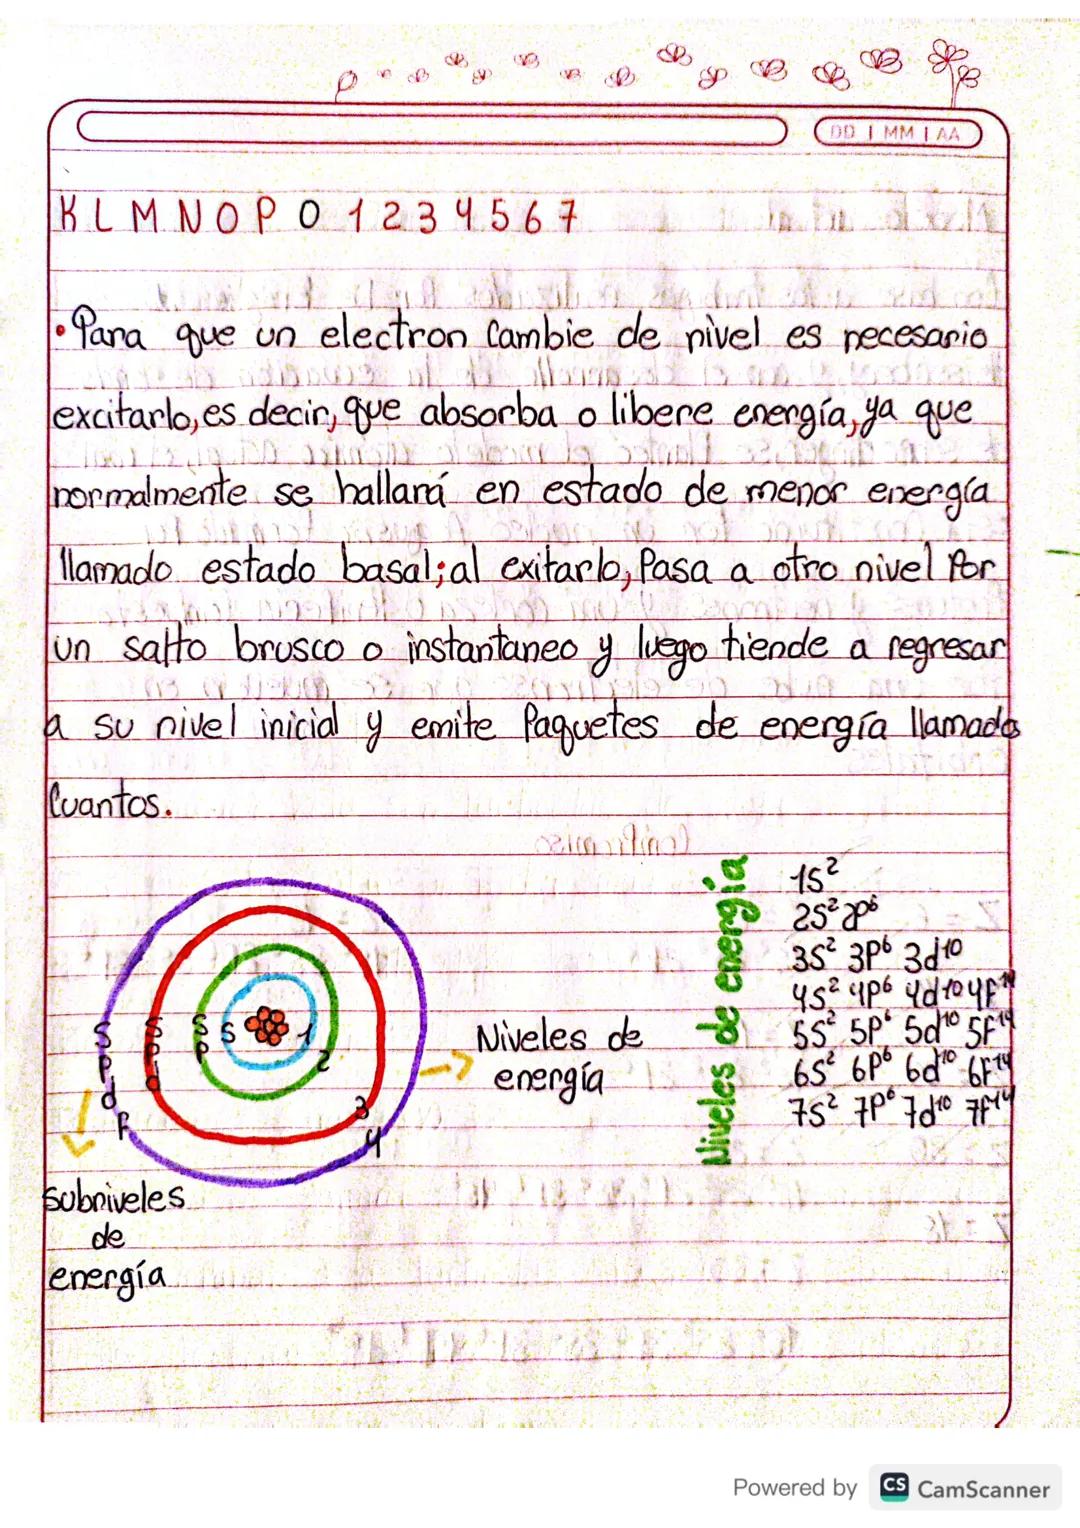 DD | MM | AA
K L M N O P O 1 2 3 4 5 6 7
•Para que un electron cambie de nivel es necesario
excitarlo, es decir, que absorba o libere energía, ya que
normalmente se hallará en estado de menor energía
llamado estado basal; al exitarlo, Pasa a otro nivel Por
un salto brusco o instantaneo y luego tiende a regresar
a su nivel inicial y emite Paquetes de energía llamado
Cuantos.
S
S P
S P d
S P d f
1
2
3
4
Niveles de
energía
subniveles
de
energía
Niveles de energía
1S²
2S² 2P⁶
3S² 3P⁶ 3d¹⁰
4S² 4P⁶ 4d¹⁰ 4f¹⁴
5S² 5P⁶ 5d¹⁰ 5f¹⁴
6S² 6P⁶ 6d¹⁰ 6f¹⁴
7S² 7P⁶ 7d¹⁰ 7f¹⁴
Powered by CS CamScanner